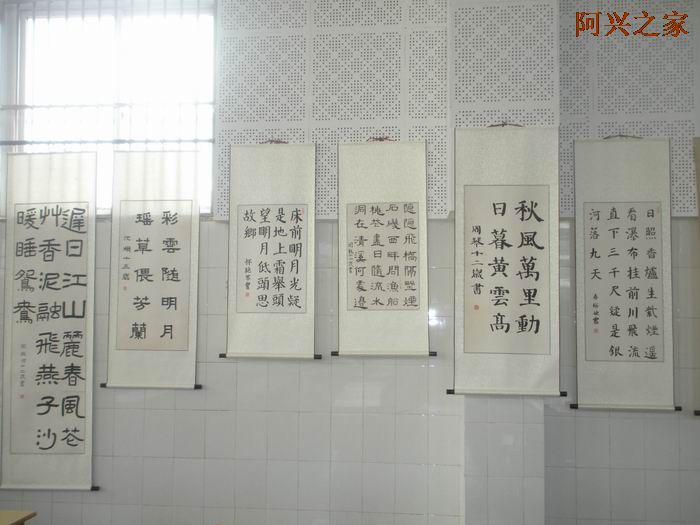 阿兴之家
遲日江山麗春風花
艸香泥融飛燕子沙
暖睡鴛鴦
彩雲随明月
瑶草偎芳蘭
床前明月光疑
是地上霜舉頭
望明月低頭思
故鄉
隐隐飛橋隔墅煙
石磯西畔問漁船
桃花盡日隨流水
洞在清溪何處邊
秋風萬里動
日暮黄雲高
周琴十二歲書
日照香爐生紫煙遥
看瀑布挂前川飛流
直下三千尺疑是銀
河落九天